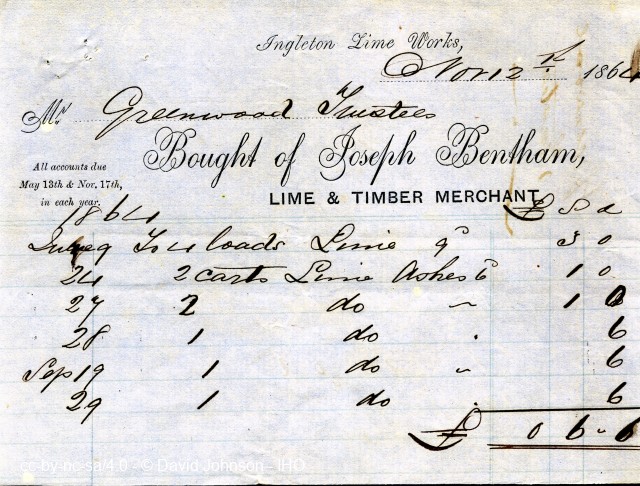 Ingleton Lime Works,
Nov 12th 1864
Mr Greenwood Trustees
Bought of Joseph Bentham,
All accounts due
May 13th & Nov. 17th,
in each year.
LIME & TIMBER MERCHANT
1864 £ s d
To 4 loads Lime 9d 3 0
24 2 carts Lime Ashes 6d 1 0
27 2 do " 1 0
28 1 do . 6
Sep 19 1 do " 6
29 1 do . 6
£ 0 6 - 6
cc-by-nc-sa/4.0 - © David Johnson - IHO